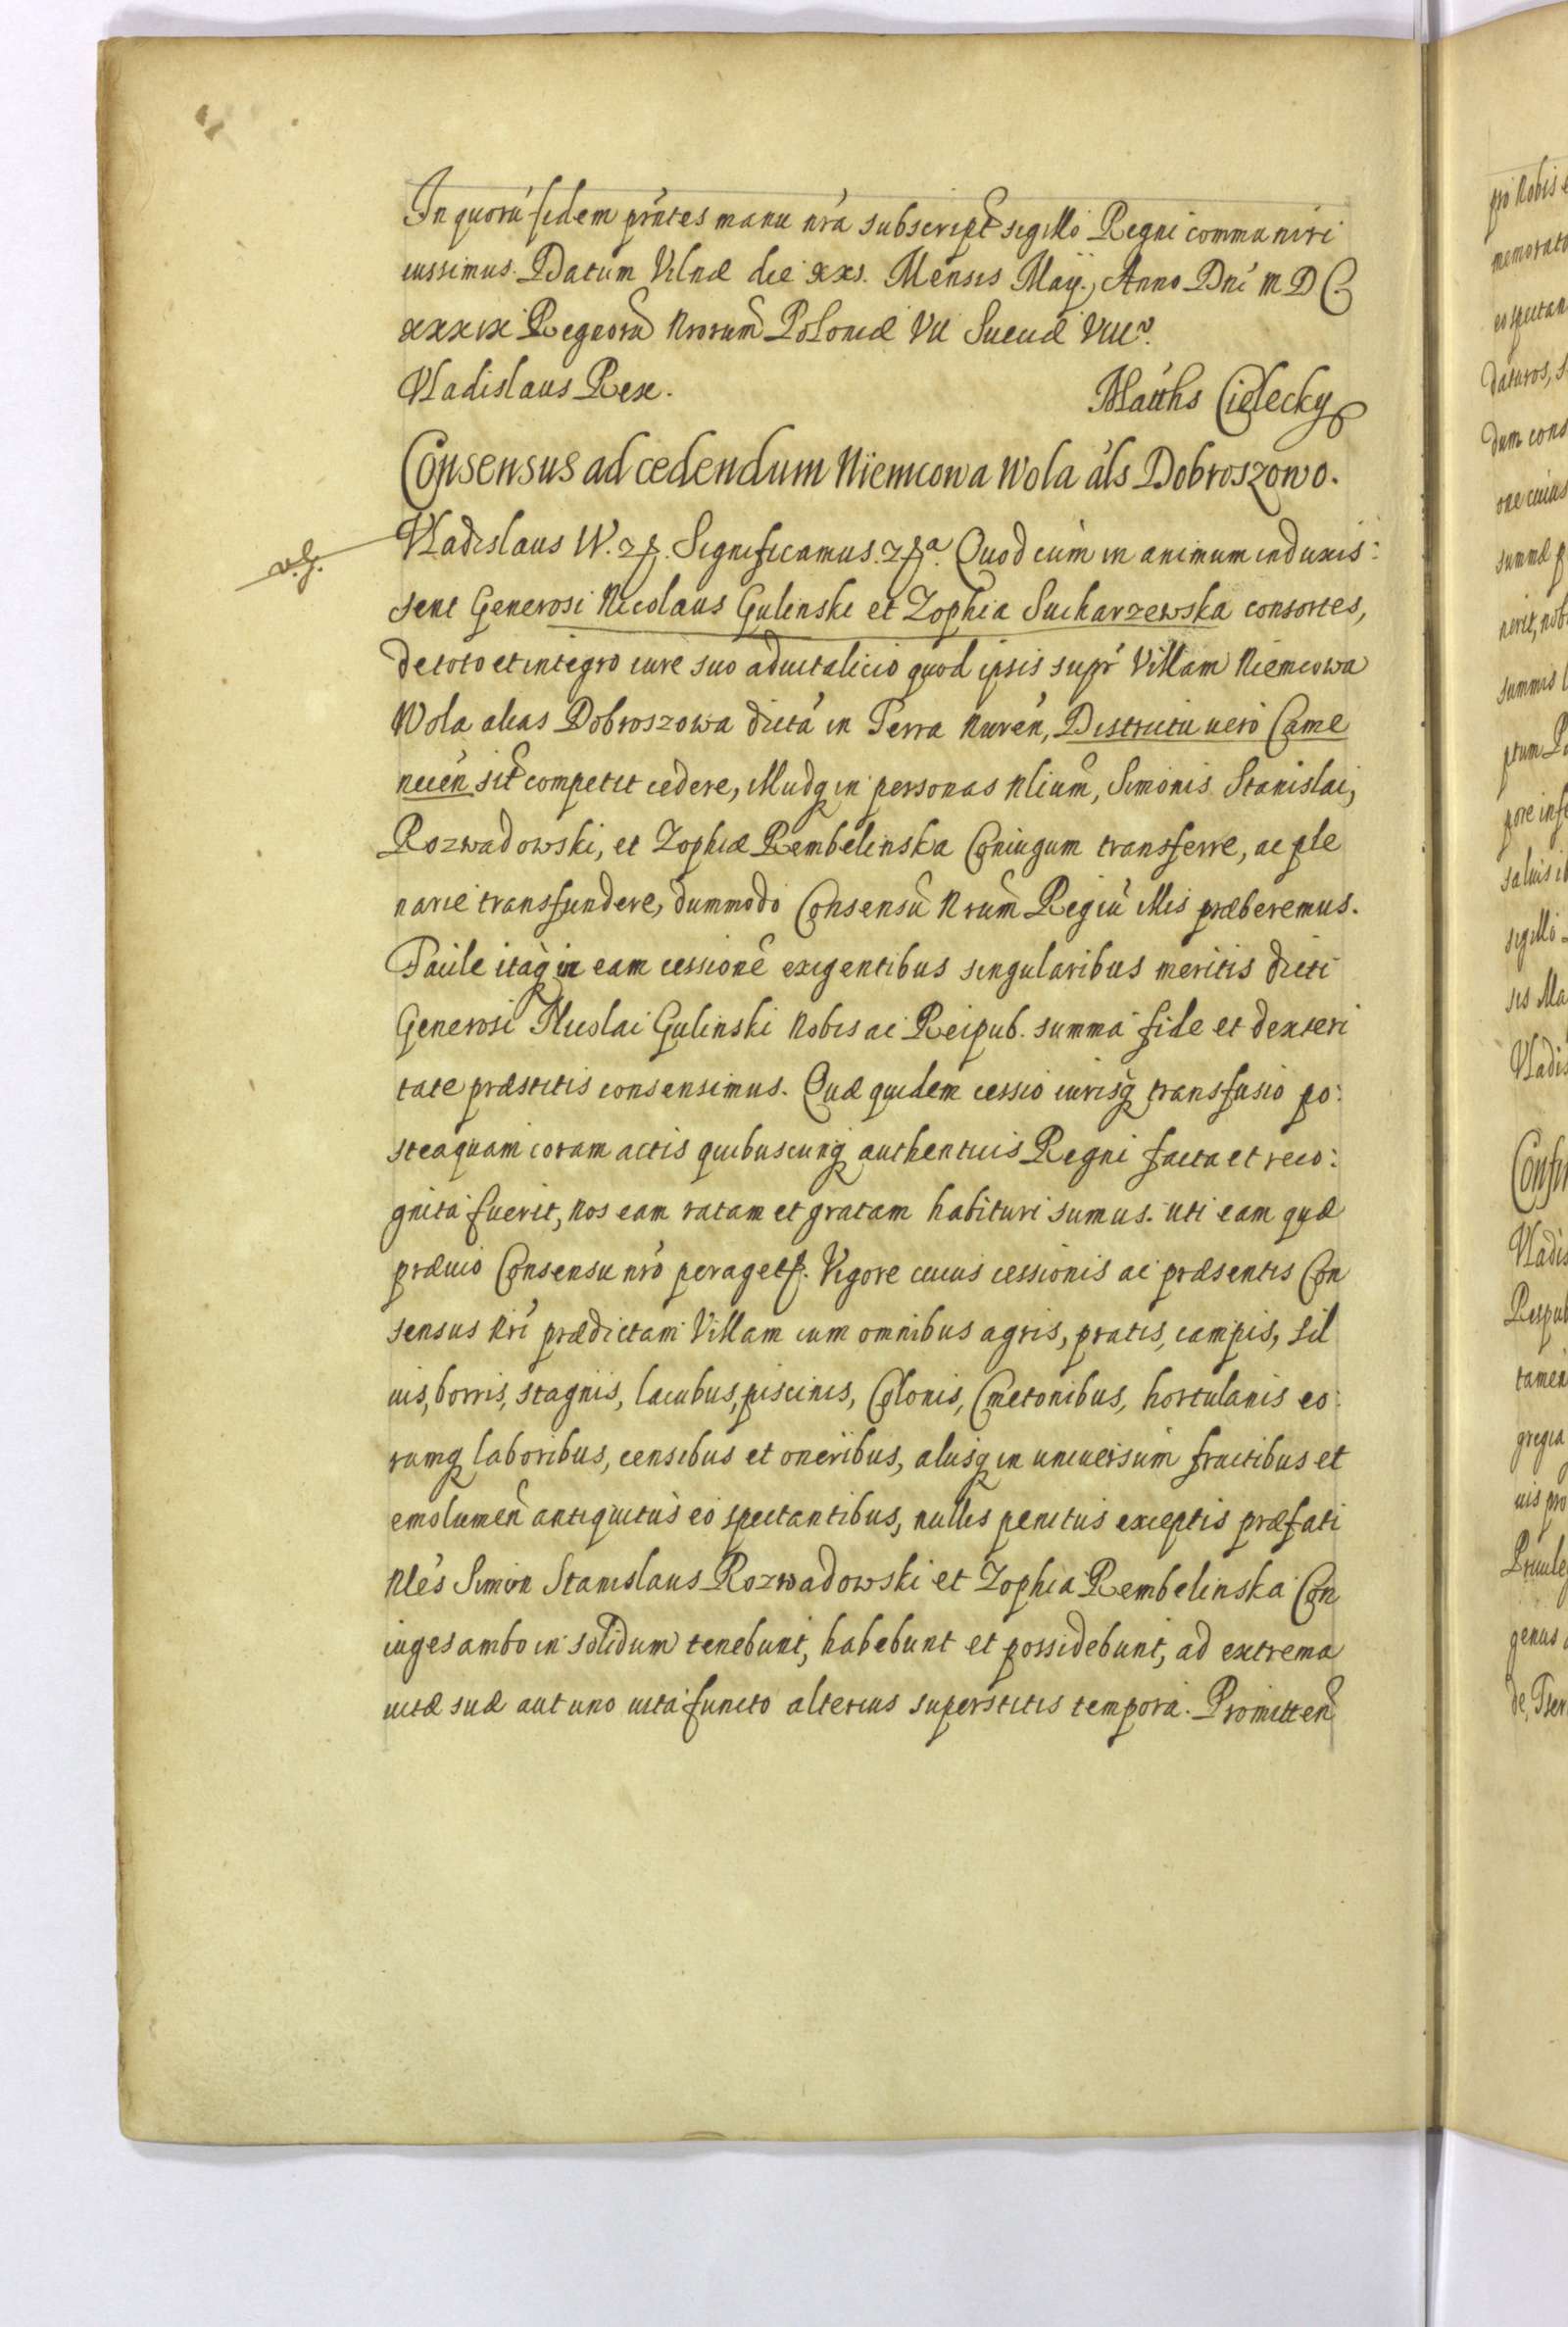 In quorũ fidem prñtes manu nrã subscript̃ sigillo Regni communiri
iussimus. Datum Vilnæ die xxi. Mensis Maij. Anno Dni M D C
xxxix Regnorũ Nrorum̃ Poloniæ VII Sueciæ VIII.
Vladislaus Rex. Matths Cielecky
Consensus ad cedendum Niemcowa Wola als Dobroszowo.
v.g.
Vladislaus IV. etc. Significamus. etca. Quod cum in animum induxis:
sent Generosi Nicolaus Gulinski et Zophia Sucharzewska consortes,
de toto et integro iure suo aduitalicio quod ipsis supr Villam Niemcowa
Wola alias Dobroszowa dictã in Terra Nuren, Districtu uero Came
necen̄ sit̃ competit cedere, illudq in personas Nlium̃, Simonis Stanislai,
Rozwadowski, et Zophiæ Rembelinska Coniugum transferre, ac ple
narie transfundere, dummodo Consensũ Nrum̃ Regiũ illis præberemus.
Facile itaq in eam cessionẽ exigentibus singularibus meritis dicti
Generosi Nicolai Gulinski Nobis ac Reipub. summa fide et dexteri
tate præstitis consensimus. Quæ quidem cessio iurisq transfusio po:
steaquam coram actis quibuscunq authenticis Regni facta et reco:
gnita fuerit, Nos eam ratam et gratam habituri sumus. uti eam quæ
præuio Consensu nro peragetr. Vigore cuius cessionis ac præsentis Con
sensus Nri prædictam Villam cum omnibus agris, pratis, campis, sil
uis, borris, stagnis, lacubus, piscinis, Colonis, Cmetonibus, hortulanis eo:
rumq laboribus, censibus et oneribus, alijsq in uniuersum fructibus et
emolumen̄ antiquitus eo spectantibus, nullis penitus exceptis præfati
Nles Simon Stanislaus Rozwadowski et Zophia Rembelinska Con
iuges ambo in solidum tenebunt, habebunt et possidebunt, ad extrema
uitæ suæ aut uno uita functo alterius superstitis tempora. Promitten̄